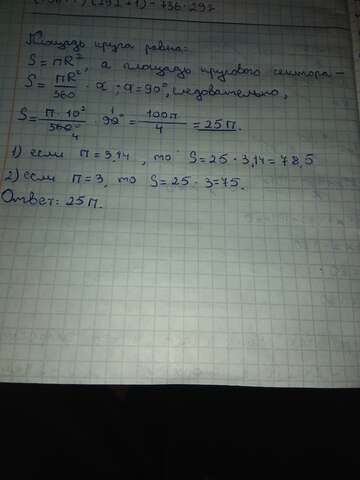 Площадь круга равна:
S = ПR², а площадь кругового сектора -
S = ПR²/360 · α; α = 90°, следовательно,
S = П · 10²/360° · 90° = 100П/4 = 25П.
1) если П = 3,14, то S = 25 · 3,14 = 78,5
2) если П = 3, то S = 25 · 3 = 75.
Ответ: 25П.